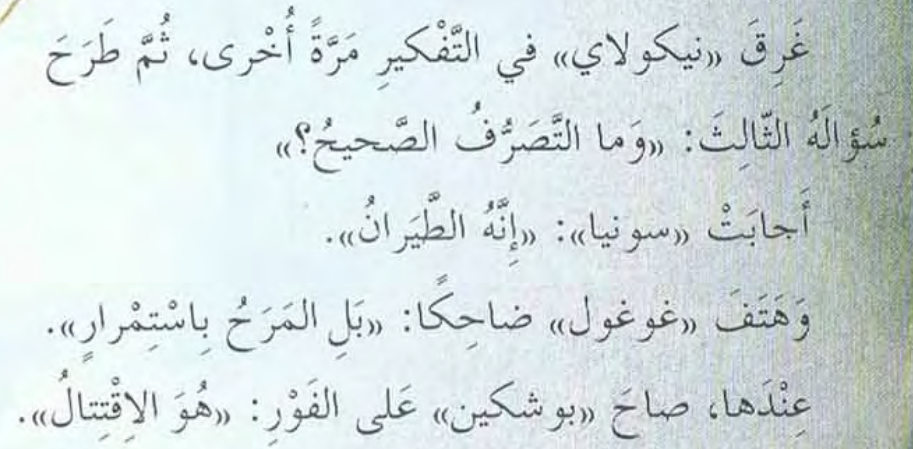 غَرِقَ «نيكولاي» في التَّفْكيرِ مَرَّةً أُخْرى، ثُمَّ طَرَحَ
سُؤالَهُ الثّالِثَ: «وَما التَّصَرُّفُ الصَّحيحُ؟»
أَجابَتْ «سونيا»: «إِنَّهُ الطَّيَرانُ».
وَهَتَفَ «غوغول» ضاحِكًا: «بَلِ المَرَحُ بِاسْتِمْرارٍ».
عِنْدَها، صاحَ «بوشكين» عَلى الفَوْرِ: «هُوَ الاِقْتِتالُ».